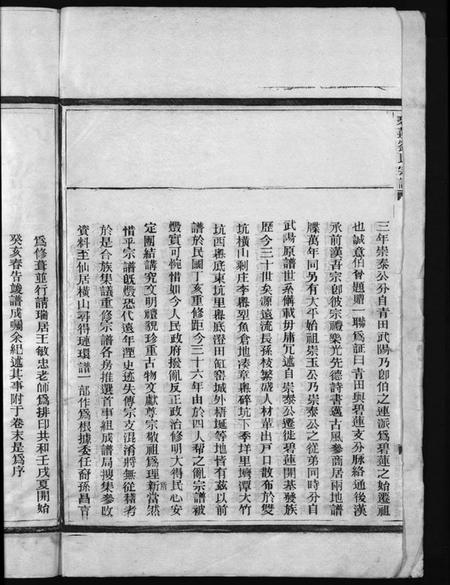 三年崇泰公分自青田武陽乃卽伯之連派爲碧蓮之始遷祖
也誠意伯曾題贈一聯爲証曰青田與碧蓮支分脉絡通後漢
承前漢吾宗卽彼宗禮樂光先德詩書邁古風參商居兩地譜
牒萬年同另有大平始祖崇玉公乃崇泰公之從弟同時分自
武陽原譜世系備載毋庸冗述自崇泰公遷徙碧蓮開基發族
歷今三十世矣源遠流長孫枝繁盛人材輩出戸口散布於雙
坑橫山剩庄李嶴塱魚倉地湊章嶴碎坑下季垟里塆潭大竹
坑西嶴底東坑里嶴底澄田缸窑城外梧埏等地皆有茲以前
譜於民國丁亥重修距今三十六年由於四人帮之亂宗譜被
燬實可惋惜如今人民政府撥亂反正政治修明大得民心安
定團結講究文明禮貌珍重古物文獻尊宗敬祖爲理所當然
惜乎宗譜旣燬恐代遠年湮史迹失傳宗支混淆將無從稽考
於是合族集議重修宗譜各房推選首事組成譜局搜集參攷
資料至仙居橫山尋得璉環譜一部作爲根據委任裔孫昌言
爲修葺並行請瑞居王敏忠老師爲排印共和壬戌夏開始
癸亥春告竣譜成囑余紀述其事附于卷末是爲序